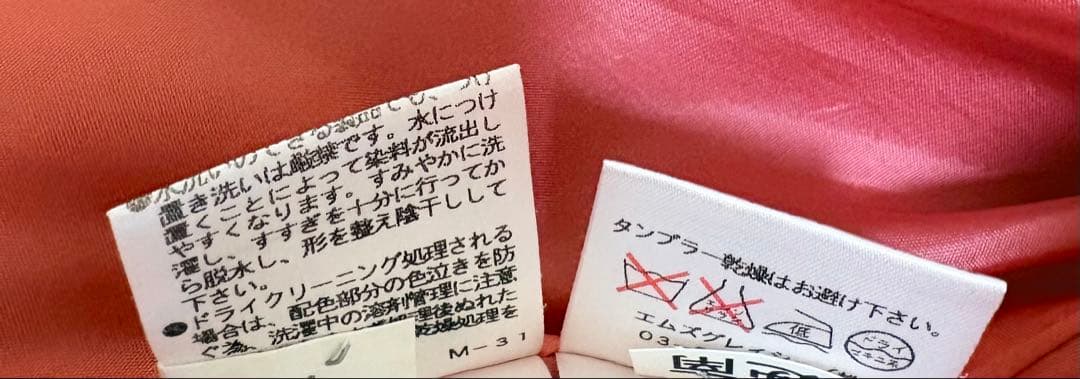 ●水洗いのできる製品でも、つけ
置き洗いは厳禁です。水につけ
置くことによって染料が流出し
やすくなります。すみやかに洗
濯し、すすぎを十分に行ってか
ら脱水し、形を整え陰干しして
下さい。
●ドライクリーニング処理される
場合は、配色部分の色泣きを防
ぐ為、洗濯中の溶剤管理に注意
処理後ぬれた
乾燥処理を
M-31
タンブラー乾燥はお避け下さい。
エンソ
サラシ
低
ドライ
セキユ系
エムズグレイシー
03